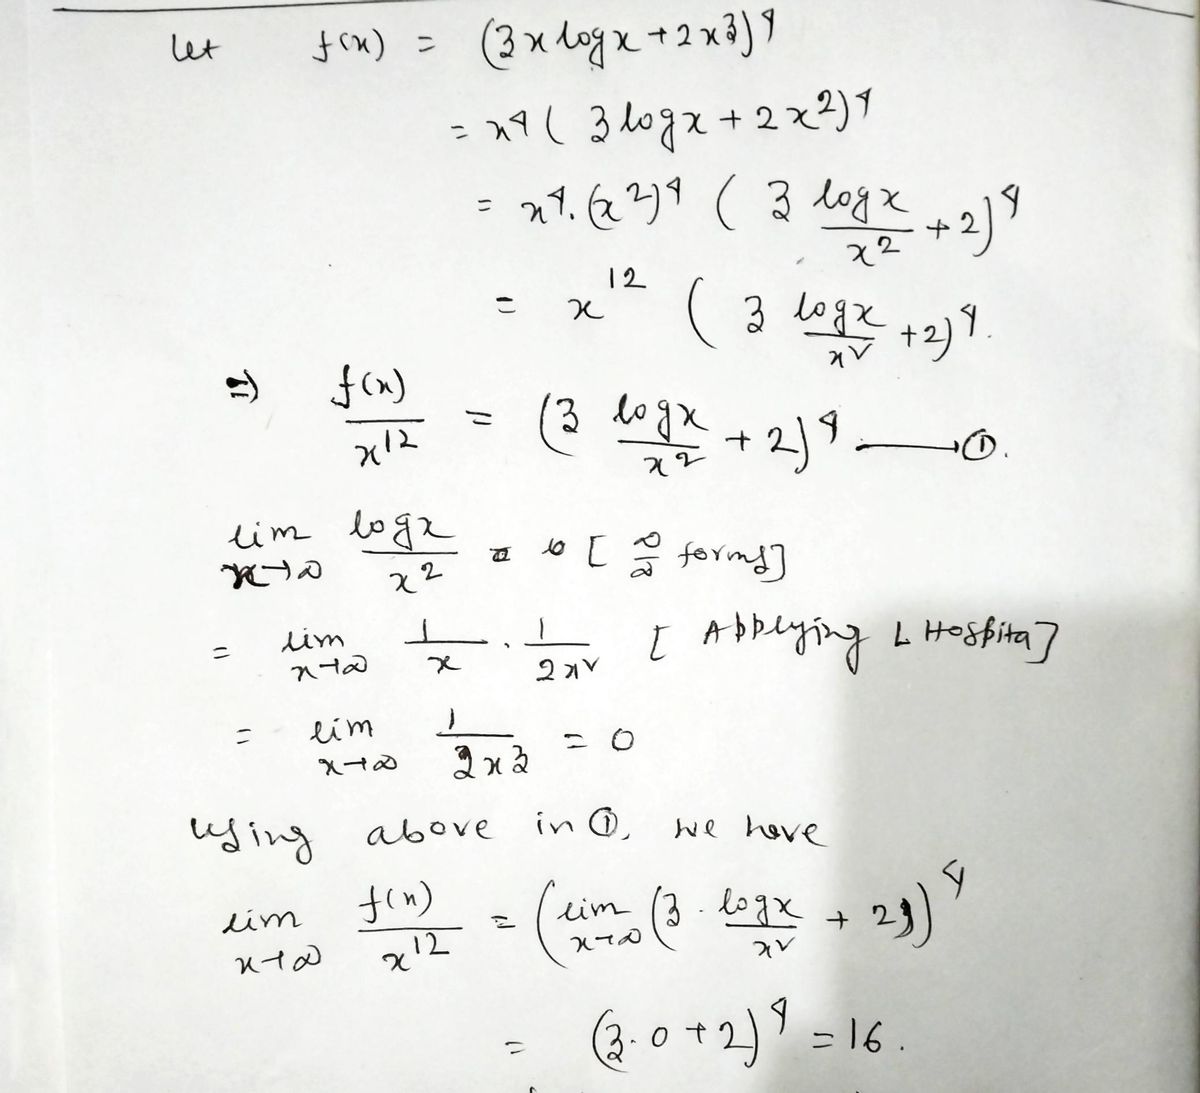 let f(x) = (3x log x + 2x3)4
= x4 ( 3 log x + 2x2)4
= x4. (x2)4 ( 3 log x / x2 + 2)4
= x12 ( 3 log x / x2 + 2)4.
=> f(x) / x12 = (3 log x / x2 + 2)4 ——①.
lim x→∞ log x / x2 = [ ∞/∞ forms]
= lim x→∞ 1/x . 1/2x2 [ Applying L Hospita]
= lim x→∞ 1/2x3 = 0
Using above in ①, we have
lim x→∞ f(x) / x12 = (lim x→∞ (3 . log x / x2 + 2))4
= (3.0 + 2)4 = 16.